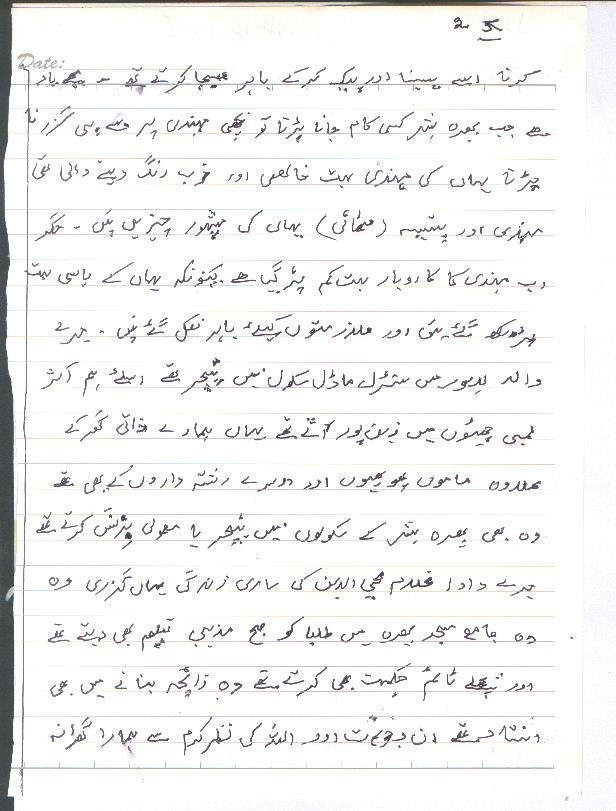 2 5
Date:
کرنا اسے پیسنا اور پیک کرکے باہر بھیجا کرتے تھے - یاد
ہے جب بھیرہ شہر کسی کام جانا پڑتا تو مہندی پر سے ہی گزرنا
پڑتا یہاں کی مہندی بہت خالص اور خوب رنگ دینے والی تھی
مہندی اور پتیسہ (مٹھائی) یہاں کی مشہور چیزیں ہیں - مگر
اب مہندی کا کاروبار بہت کم پڑ گیا ہے کیونکہ یہاں کے باسی بہت
پڑھ لکھ گئے ہیں اور ملازمتوں کیلئے باہر نکل گئے ہیں - میرے
والد لاہور میں سنٹرل ماڈل سکول میں ٹیچر تھے اسلئے ہم اکثر
لمبی چھٹیوں میں زین پور آتے تھے یہاں ہمارے ذاتی گھر کے
علاوہ ماموں پھوپھیوں اور دوسرے رشتہ داروں کے بھی تھے
وہ بھی بھیرہ شہر کے سکولوں میں ٹیچر یا معمولی بزنس کرتے تھے
میرے دادا غلام محی الدین کی ساری زندگی یہاں گزری وہ
وہ جامع مسجد بھیرہ میں طلبا کو صبح مذہبی تعلیم بھی دیتے تھے
اور پچھلے ٹائم حکمت بھی کرتے تھے وہ زائچہ بنانے میں بھی
انتہا تھے ان اور اللہ کی نظر کرم سے ہمارا گھرانہ